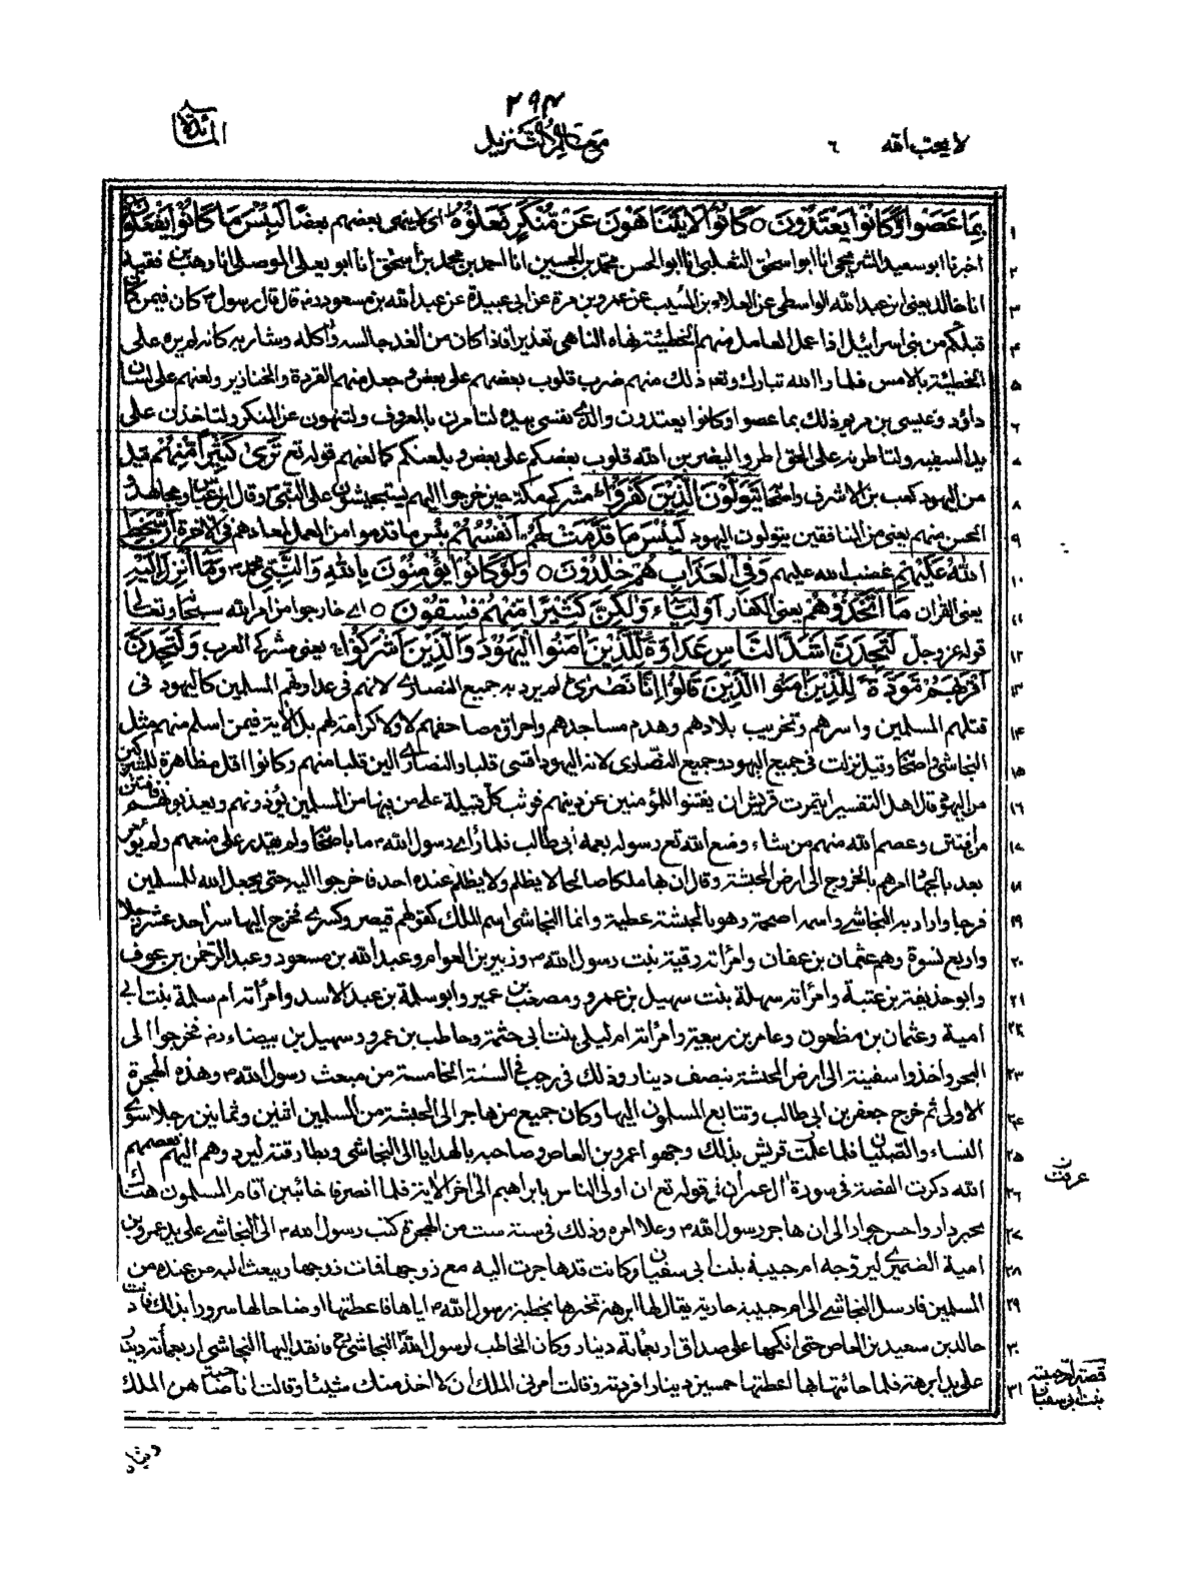 ٢٩٤
لا يحب الله ٦ معالم التنزيل المائدة
١ بِمَا عَصَوْا وَّكَانُوْا يَعْتَدُوْنَ ○ كَانُوْا لَا يَتَنَاهَوْنَ عَنْ مُّنْكَرٍ فَعَلُوْهُ اى لا ينهى بعضهم بعضا لَبِئْسَ مَا كَانُوْا يَفْعَلُوْنَ
٢ اخبرنا ابو سعيد الشريحى انا ابو اسحق الثعلبى انا ابو الحسن محمد بن الحسين انا احمد بن محمد بن اسحق انا ابو يعلى الموصلى انا وهب بن بقية
٣ انا خالد يعنى ابن عبد الله الواسطى عن العلاء بن المسيب عن عمرو بن مرة عن ابى عبيدة عن عبد الله بن مسعود رض قال قال رسول كان فيمن كان
٤ قبلكم من بنى اسرائيل اذا عمل العامل منهم الخطيئة نهاه الناهى تعذيرا فاذا كان من الغد جالسه واٰكله وشاربه كانه لم يره على
٥ الخطيئة بالامس فلما را الله تبارك وتع ذلك منهم ضرب قلوب بعضهم على بعض وجعل منهم القردة والخنازير ولعنهم على لسان
٦ داؤد وعيسى بن مريم ذلك بما عصوا وكانوا يعتدون والذى نفسى بيده لتامرن بالمعروف ولتنهون عن المنكر ولتاخذن على
٧ يد السفيه ولتاطرنه على الحق اطرا او ليضربن الله قلوب بعضكم على بعض ويلعنكم كما لعنهم قوله تع تَرٰى كَثِيْرًا مِّنْهُمْ قيل
٨ من اليهود كعب بن الاشرف واصحابه يَتَوَلَّوْنَ الَّذِيْنَ كَفَرُوْا مشركى مكة حين خرجوا اليهم يستجيشون على النبى وقال ابن عباس ومجاهد و
٩ الحسن منهم يعنى من المنافقين يتولون اليهود لَبِئْسَ مَا قَدَّمَتْ لَهُمْ اَنْفُسُهُمْ بئس ما قدموا من العمل لمعادهم فى الاٰخرة اَنْ سَخِطَ
١٠ اللّٰهُ عَلَيْهِمْ غضب الله عليهم وَفِى الْعَذَابِ هُمْ خٰلِدُوْنَ ○ وَلَوْ كَانُوْا يُؤْمِنُوْنَ بِاللّٰهِ وَالنَّبِىِّ محمد وَمَا اُنْزِلَ اِلَيْهِ
١١ يعنى القران مَا اتَّخَذُوْهُمْ يعنى الكفار اَوْلِيَآءَ وَلٰكِنَّ كَثِيْرًا مِّنْهُمْ فٰسِقُوْنَ ○ اى خارجوا من امر الله سبحانه وتعالى
١٢ قوله عز وجل لَتَجِدَنَّ اَشَدَّ النَّاسِ عَدَاوَةً لِّلَّذِيْنَ اٰمَنُوا الْيَهُوْدَ وَالَّذِيْنَ اَشْرَكُوْا يعنى مشركى العرب وَلَتَجِدَنَّ
١٣ اَقْرَبَهُمْ مَّوَدَّةً لِّلَّذِيْنَ اٰمَنُوا الَّذِيْنَ قَالُوْا اِنَّا نَصٰرٰى لم يرد به جميع النصارى لانهم فى عداوتهم المسلمين كاليهود فى
١٤ قتلهم المسلمين واسرهم وتخريب بلادهم وهدم مساجدهم واحراق مصاحفهم لا ولا كرامة لهم بل الاٰية فيمن اسلم منهم مثل
١٥ النجاشى واصحابه وقيل نزلت فى جميع اليهود وجميع النصارى لانه اليهود اقسى قلبا والنصارى الين قلبا منهم وكانوا اقل مظاهرة للمشركين
١٦ من اليهود قال اهل التفسير ايتمرت قريش ان يفتنوا المؤمنين عن دينهم فوثب كل قبيلة على من فيها من المسلمين يؤذونهم ويعذبونهم فافتتن
١٧ من افتتن وعصم الله منهم من شاء ومنع الله تع رسوله بعمه ابى طالب فلما راى رسول الله ما باصحابه ولم يقدر على منعهم ولم يؤمر
١٨ بعد بالجهاد امرهم بالخروج الى ارض الحبشة وقال ان بها ملكا صالحا لا يظلم ولا يظلم عنده احد فاخرجوا اليه حتى يجعل الله للمسلمين
١٩ فرجا واراد به النجاشى واسمه اصحمة وهو بالحبشة عطية وانما النجاشى اسم الملك كقولهم قيصر وكسرى فخرج اليها سرا احد عشر رجلا
٢٠ واربع نسوة وهم عثمان بن عفان وامراته رقية بنت رسول الله وزبير بن العوام وعبد الله بن مسعود وعبد الرحمٰن بن عوف
٢١ وابو حذيفة بن عتبة وامراته سهلة بنت سهيل بن عمرو ومصعب بن عمير وابو سلمة بن عبد الاسد وامراته ام سلمة بنت ابى
٢٢ امية وعثمان بن مظعون وعامر بن ربيعة وامراته ام ليلى بنت ابى حثمة وحاطب بن عمرو وسهيل بن بيضاء رض فخرجوا الى
٢٣ البحر واخذوا سفينة الى ارض الحبشة بنصف دينار وذلك فى رجب فى السنة الخامسة من مبعث رسول الله وهذه الهجرة
٢٤ الاولى ثم خرج جعفر بن ابى طالب وتتابع المسلمون اليها وكان جميع من هاجر الى الحبشة من المسلمين اثنين وثمانين رجلا سوى
٢٥ النساء والصبيان فلما علمت قريش بذلك وجهوا عمرو بن العاص وصاحبه بالهدايا الى النجاشى وبطارقته ليردوهم اليهم فعصمهم
٢٦ الله ذكرت القصة فى سورة اٰل عمران فى قوله تع ان اولى الناس بابراهيم الى اخر الاٰية فلما انصرفا خائبين اقام المسلمون هناك
٢٧ بخير دار واحسن جوار الى ان هاجر رسول الله وعلا امره وذلك فى سنة ست من الهجرة كتب رسول الله الى النجاشى على يد عمرو بن
٢٨ امية الضميرى ليزوجه ام حبيبة بنت ابى سفيان وكانت قد هاجرت اليه مع زوجها فمات زوجها ويبعث اليه من عنده من
٢٩ المسلمين فارسل النجاشى الى ام حبيبة جارية يقال لها ابرهة تخبرها بخطبة رسول الله اياها فاعطتها اوضاحا لها سرورا بذلك فاذنت
٣٠ خالد بن سعيد بن العاص حتى انكحها على صداق اربعمائة دينار وكان الخاطب لرسول الله النجاشى فانفذ اليها النجاشى اربعمائة دينار
٣١ على يد ابرهة فلما جائتها بها اعطتها خمسين دينارا فردته وقالت امرنى الملك ان لا اخذ منك شيئا وقالت انا صاحبة دهن الملك
قصة ام حبيبة
بنت ابى سفيان